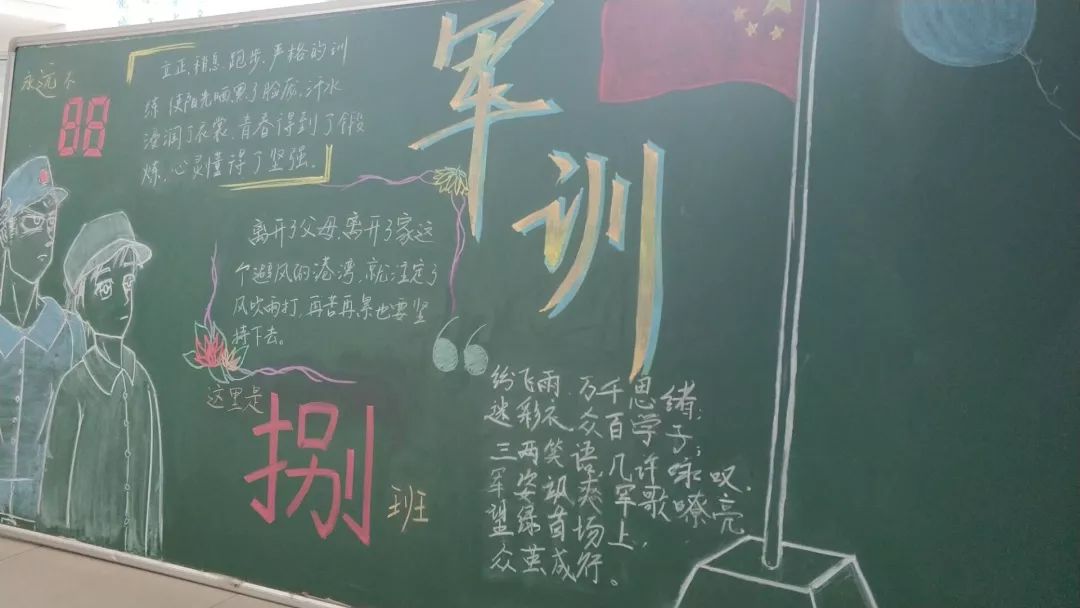 军训
永远不
88
立正、稍息、跑步、严格的训
练使阳光晒黑了脸庞,汗水
浸润了衣裳,青春得到了锻
炼,心灵懂得了坚强.
离开了父母,离开了家这
个避风的港湾,就注定了
风吹雨打,再苦再累也要坚
持下去。
这里是
捌
班
纷飞雨,万千思绪;
迷彩众百学子;
三两笑语,几许咏叹.
军安飒爽
绿首场上,歌嘹亮
众英成行。